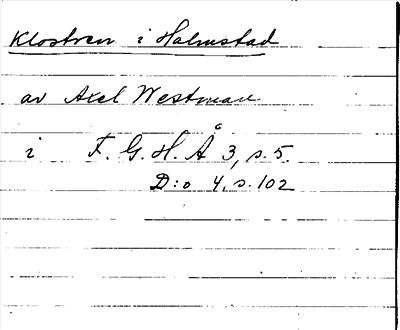 Klostren i Halmstad
av Axel Westman
i F. G. H. Å 3, s. 5.
D:o 4, s. 102